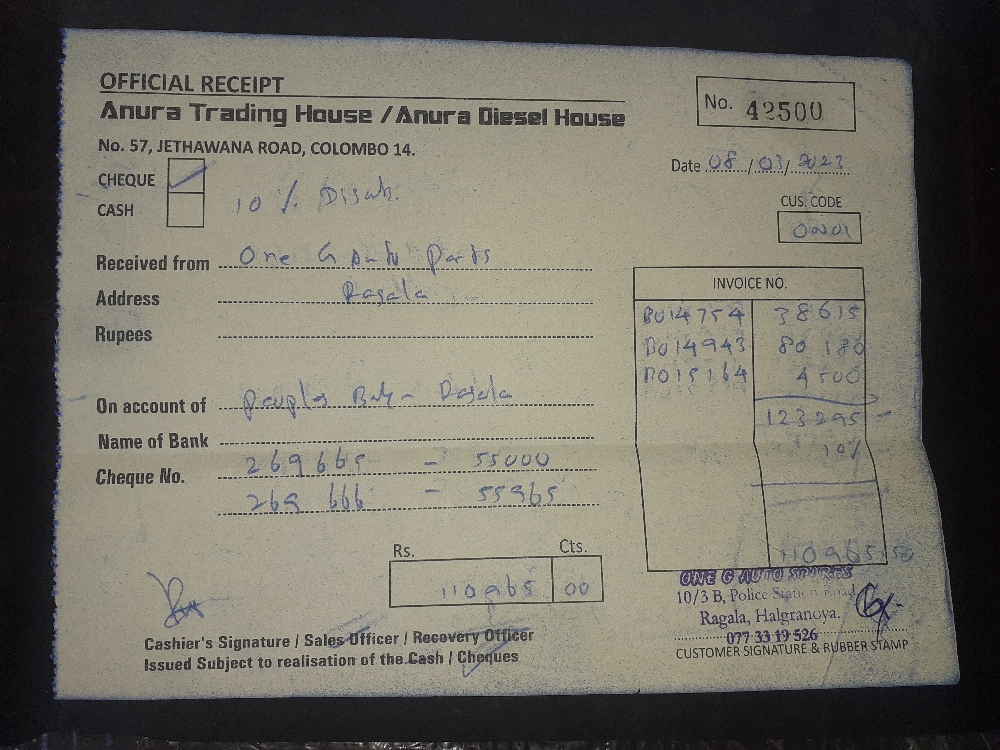 OFFICIAL RECEIPT
Anura Trading House / Anura Diesel House
No. 57, JETHAWANA ROAD, COLOMBO 14.
No. 42500
Date 08 / 03 / 2023
CHEQUE
CASH
10 %
CUS. CODE
Received from One G Auto Parts
Address Ragala
Rupees
INVOICE NO.
B014754 38615
B014943 80 180
B015164 4500
123295 -
10%
110965.50
On account of Peoples Bank - Ragala
Name of Bank
Cheque No. 269665 - 55000
269 666 - 55965
Rs. Cts.
110965 00
Cashier's Signature / Sales Officer / Recovery Officer
Issued Subject to realisation of the Cash / Cheques
ONE G AUTO SPARES
10/3 B, Police Station Road,
Ragala, Halgranoya.
077 33 19 526
CUSTOMER SIGNATURE & RUBBER STAMP